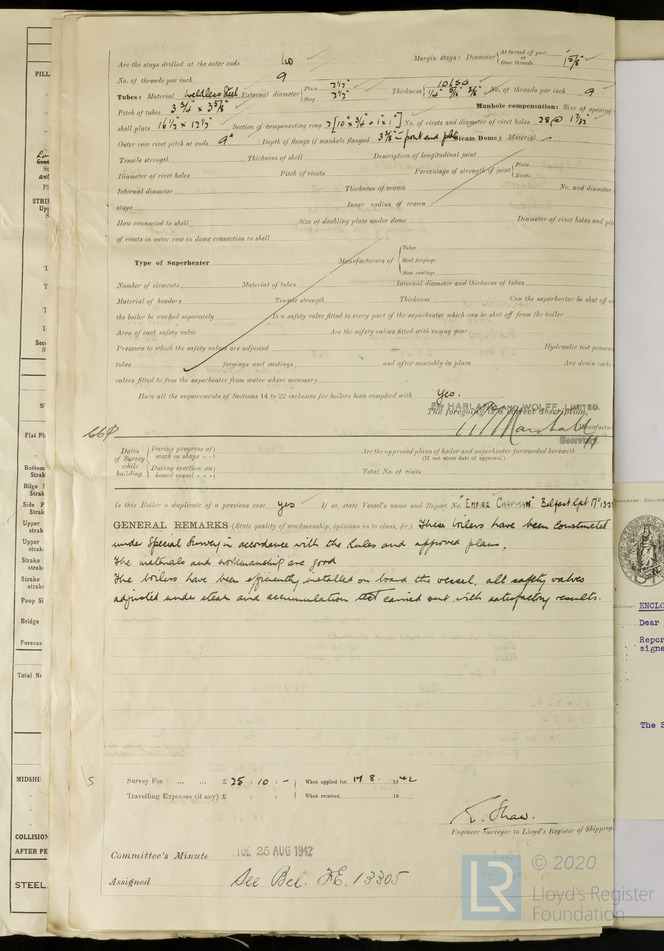 Are the stays drilled at the outer ends No Margin stays: Diameter { At turned off part, or Over threads 1 5/8"
No. of threads per inch 9
Tubes: Material Weldless Steel External diameter { Plain 2½" Stay 2½" Thickness { 10 LSG ¼" 5/16" 3/8" No. of threads per inch 9
Pitch of tubes 3 3/4" x 3 5/8" Manhole compensation: Size of opening
shell plate 16½ x 12½" Section of compensating ring No. of rivets and diameter of rivet holes 28 @ 1 7/32"
Outer row rivet pitch at ends 9" Depth of flange if manhole flanged 3 3/8" Steam Dome: Material
Tensile strength Thickness of shell Description of longitudinal joint
Diameter of rivet holes Pitch of rivets Percentage of strength of joint { Plate Rivets
Internal diameter Thickness of crown No. and diameter
stays Inner radius of crown
How connected to shell Size of doubling plate under dome Diameter of rivet holes and
of rivets in outer row in dome connection to shell
Type of Superheater Manufacturers of { Tubes Steel forgings Steel castings
Number of elements Material of tubes Internal diameter and thickness of tubes
Material of headers Tensile strength Thickness Can the superheater be shut off
the boiler be worked separately Is a safety valve fitted to every part of the superheater which can be shut off from the boiler
Area of each safety valve Are the safety valves fitted with easing gear
Pressure to which the safety valves are adjusted Hydraulic test pressure
tubes forgings and castings and after assembly in place Are drain cocks
valves fitted to free the superheater from water where necessary
Have all the requirements of Sections 14 to 22 inclusive for boilers been complied with Yes.
HARLAND AND WOLFF, LIMITED.
The foregoing is a correct description,
Secretary
Dates of Survey while building { During progress of work in shops - - During erection on board vessel - - - Are the approved plans of boiler and superheater forwarded herewith
(If not state date of approval.)
Total No. of visits
Is this Boiler a duplicate of a previous case yes If so, state Vessel's name and Report No. "EMPIRE CHAPMAN" Belfast Rpt. No
GENERAL REMARKS (State quality of workmanship, opinions as to class, &c.) These boilers have been constructed
under Special Survey in accordance with the Rules and approved plans.
The materials and workmanship are good
The boilers have been efficiently installed on board the vessel, all safety valves
adjusted under steam and accumulation test carried out with satisfactory results.
Survey Fee ... ... £25 : 10 : - When applied for, 17.8. 1942
Travelling Expenses (if any) £ : : When received, 19
Engineer Surveyor to Lloyd's Register of Shipping
Committee's Minute TUE 25 AUG 1942
Assigned See Bel. F.E. 13305
© 2020
LR Lloyd's Register
Foundation
ENCLO
Dear
Repor
signe
The S